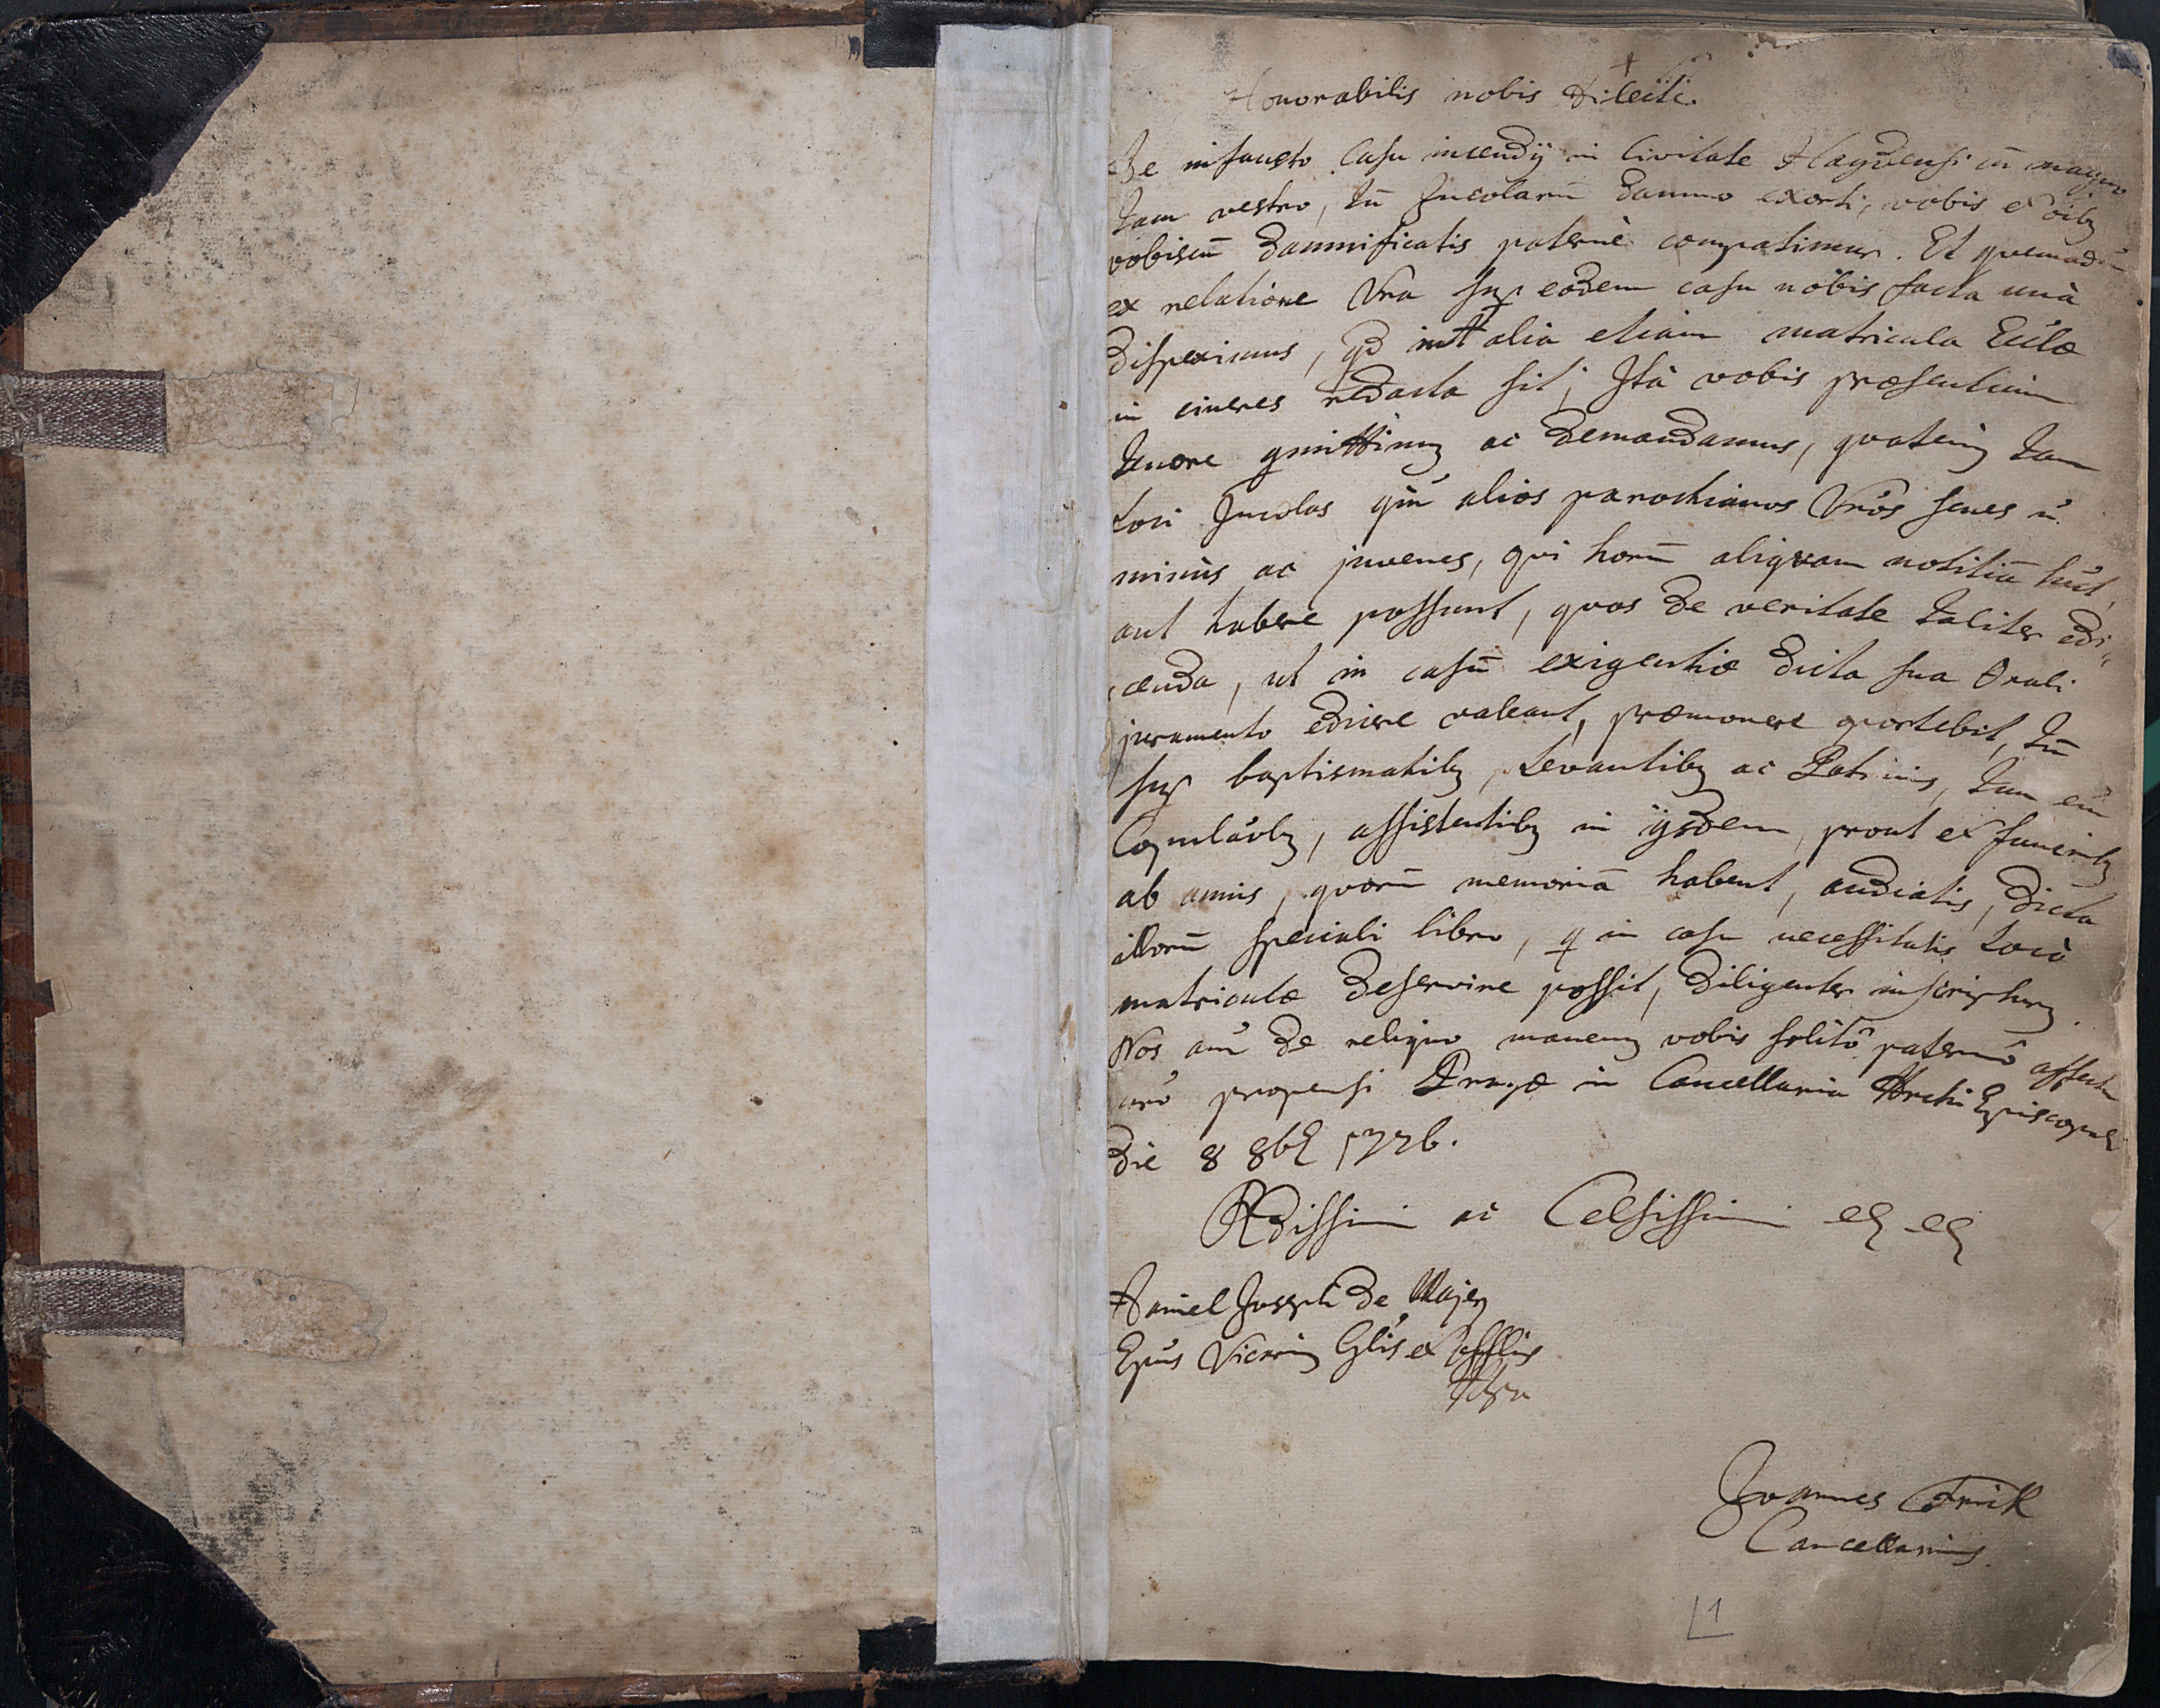 +
Honorabilis nobis Dilecte.
De infausto Casu incendij in Civitate Haydensi cū magno
tam vestro, tū Incolarū damno exorti, vobis et oibꝫ
vobiscū damnificatis paternè compatimur. Et quemadm̄
ex relatione Vra sup eodem casu nobis facta unà
dispeximus, qd int alia etiam matricula Ecclæ
in cineres redacta sit; Ità vobis præsentium
tenore committimꝫ ac demandamus, quatenꝫ tam
loci Incolas qm̄ alios parochianos Vros senes n.
minùs ac juvenes, qui horū aliquam notitiā hnt,
aut habere possunt, quos de veritate taliter edi-
cenda, ut in casū exigentiæ dicta sua Orali
juramento edicere valeant, præmonere oportebit, tū
sup baptismatibꝫ, Levantibꝫ ac Patrinis, tam em̄
Copulatibꝫ, assistentibꝫ in ijsdem, prout et funeribꝫ
ab annis, quorū memoriā habent, audiatis, dicta
illorū speciali libro, q in casu necessitatis locò
matriculæ deservire possit, diligenter inscripturꝫ.
Nos aūt de reliquo manemꝫ vobis solitô paternô affectu
nrô propensi Pragæ in Cancellaria Archi Episcopali
die 8 8br 1726.
Rdissimi ac Celsissimi etc etc
Daniel Joseph de Mayern
Epus Vicariꝫ Glis et Offlis
Mpria
Joannes Frick
Cancellarius.
1